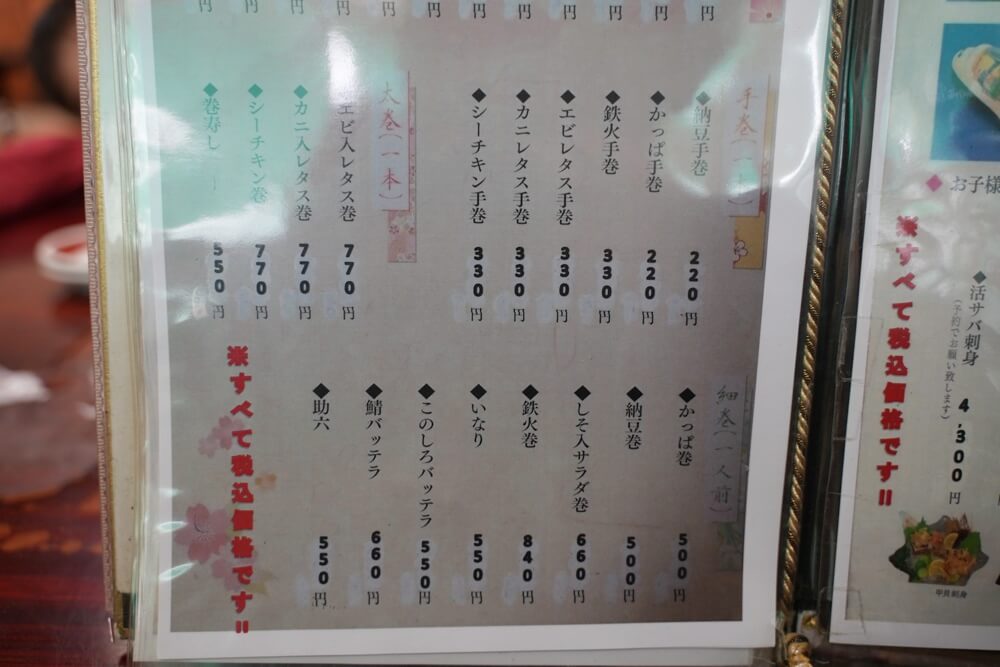 円 円 円 円 円 円 円 円 円 円 円 円
手巻(一
◆納豆手巻 220円
◆かっぱ手巻 220円
◆鉄火手巻 330円
◆エビレタス手巻 330円
◆カニレタス手巻 330円
◆シーチキン手巻 330円
太巻(一本)
エビ入レタス巻 770円
◆カニ入レタス巻 770円
◆シーチキン巻 770円
◆巻寿し 550円
細巻(一人前)
◆かっぱ巻 500円
◆納豆巻 500円
◆しそ入サラダ巻 660円
◆鉄火巻 840円
◆いなり 550円
◆このしろバッテラ 550円
◆鯖バッテラ 660円
◆助六 550円
※すべて税込価格です!!
◆お子様
◆活サバ刺身 4,300円
(予約でお願い致します)
甲貝刺身
※すべて税込価格です!!